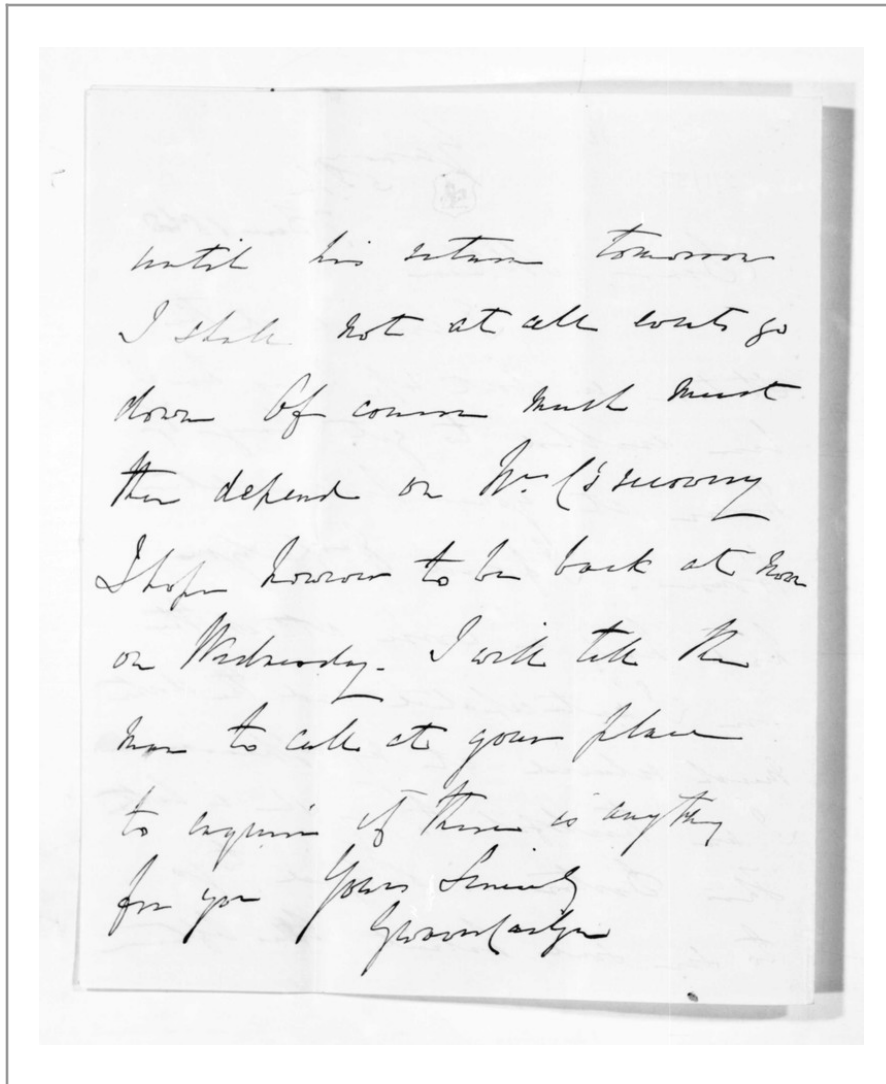 until his return tomorrow
I shall not at all events go
down Of course much must
then depend on Mr C's recovery
I hope however to be back at now
on Wednesday. I will tell the
man to call at your place
to enquire if there is anything
for you Yours Sincerely